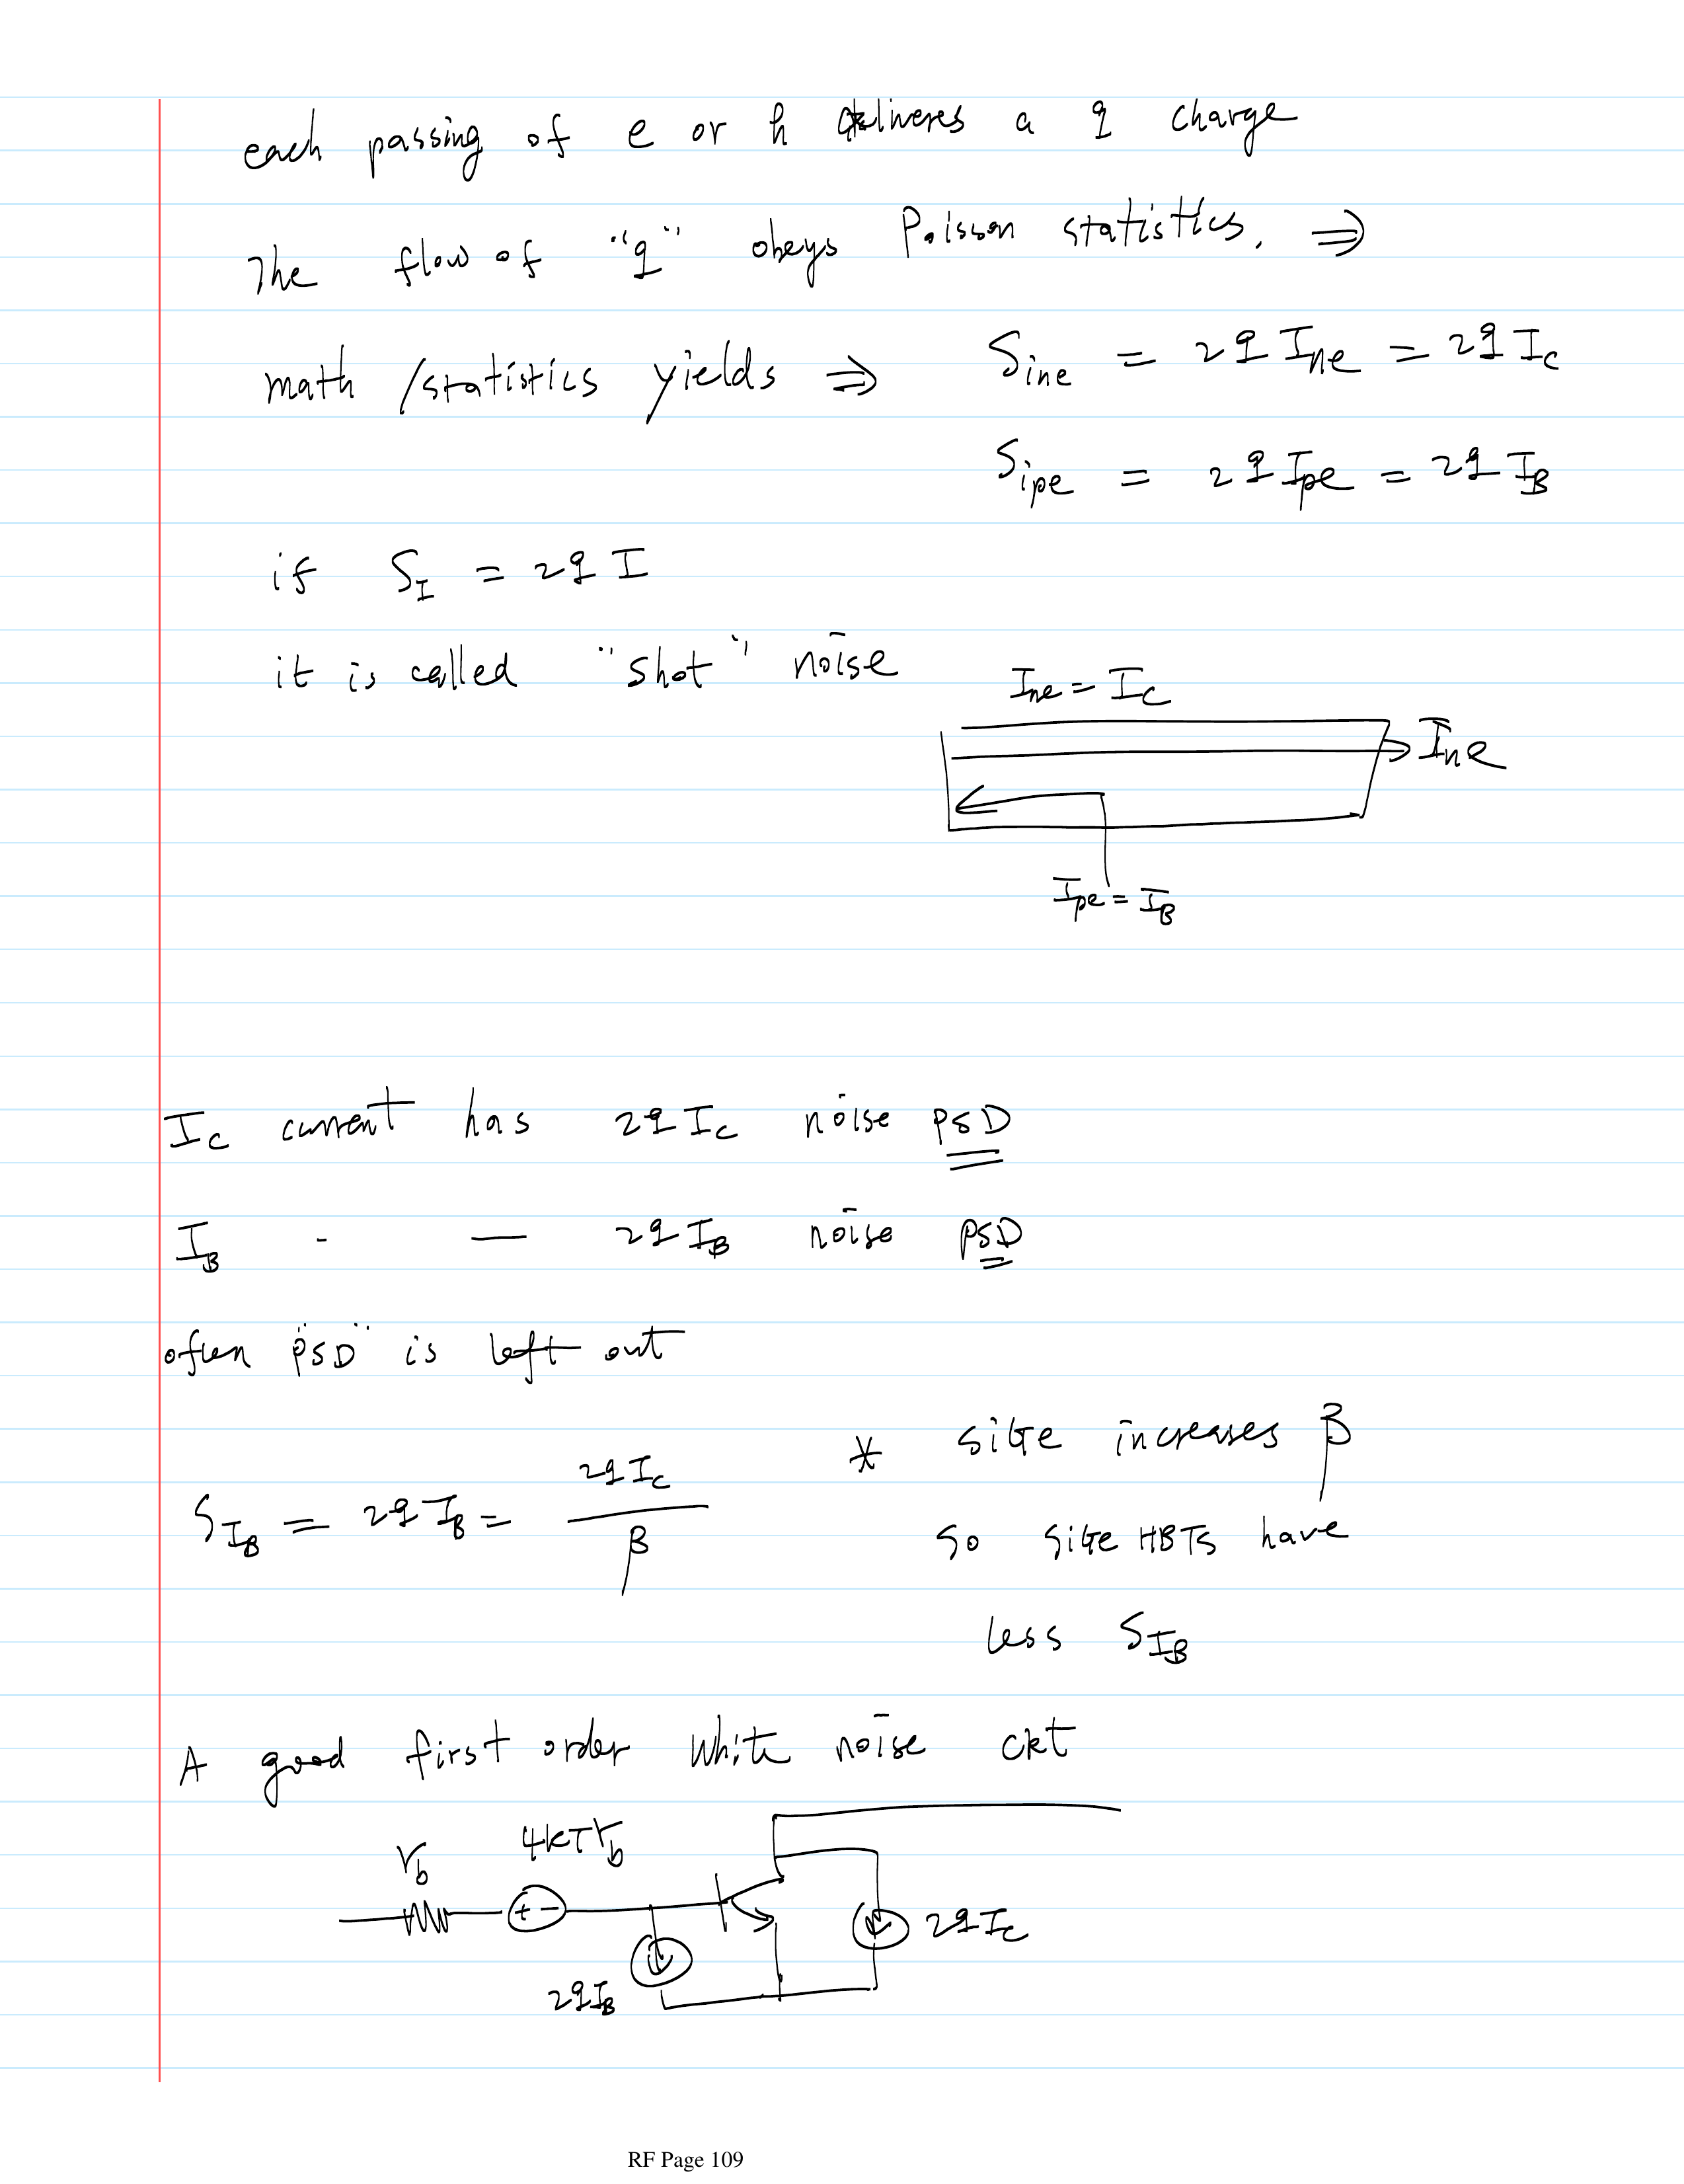 each passing of e or h deliveres a q charge
The flow of "q" obeys Poisson statistics, ⇒
math / statistics yields ⇒ S_ine = 2q I_ne = 2q I_C
S_ipe = 2q I_pe = 2q I_B
if S_I = 2q I
it is called "shot" noise
I_ne = I_C
I_ne
I_pe = I_B
I_C current has 2q I_C noise PSD
I_B - — 2q I_B noise PSD
often "PSD" is left out
S_IB = 2q I_B = 2q I_C / β
* SiGe increases β
so SiGe HBTs have
less S_IB
A good first order white noise ckt
r_b 4kTr_b
+ -
2q I_C
2q I_B
RF Page 109